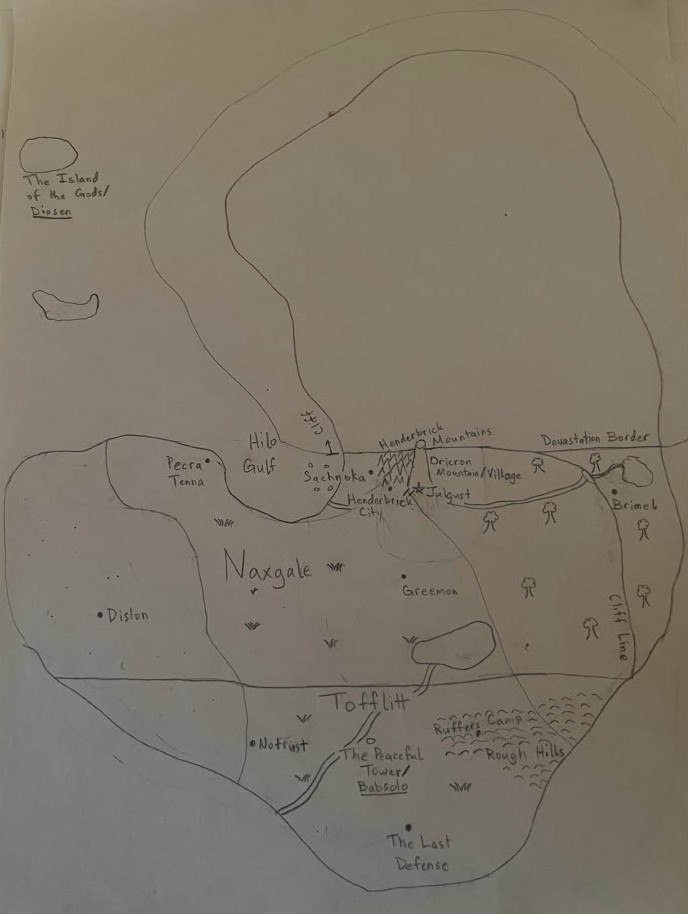 The Island
of the Gods/
Diosen
Cliff
Hilo
Gulf
Henderbrick
Mountains
Devastation Border
Pecra
Tenna
Sachnoka
Oricron
Mountain/Village
Henderbrick
City
Julgust
Brimel
Naxgale
Greemon
Diston
Cliff Line
Tofflitt
Ruffers Camp
Nofrust
The Peaceful
Tower/
Babsolo
Rough Hills
The Last
Defense